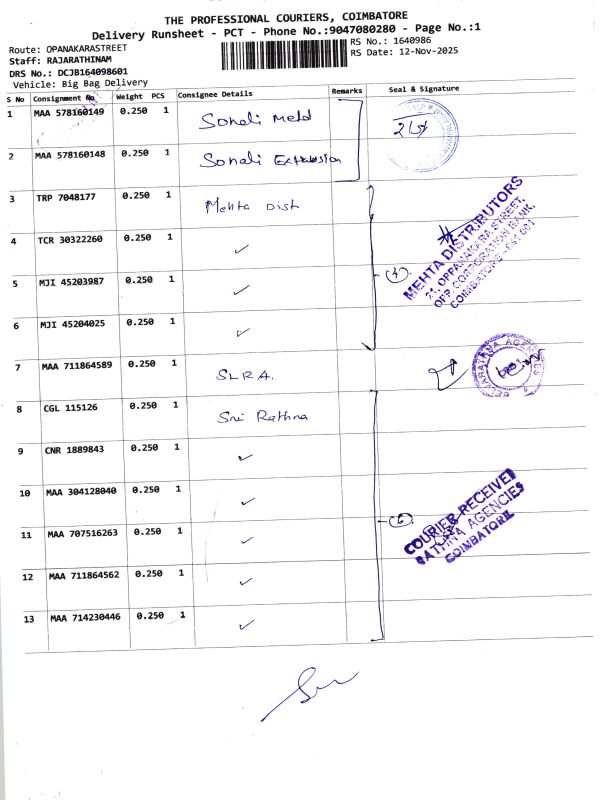 THE PROFESSIONAL COURIERS, COIMBATORE
Delivery Runsheet - PCT - Phone No.:9047080280 - Page No.:1
Route: OPANAKARASTREET
RS No.: 1640986
Staff: RAJARATHINAM
RS Date: 12-Nov-2025
DRS No.: DCJB164098601
Vehicle: Big Bag Delivery
S No Consignment No Weight PCS Consignee Details Remarks Seal & Signature
1 MAA 578160149 0.250 1 Sonali Meld
2 MAA 578160148 0.250 1 Sonali Extrusion
3 TRP 7048177 0.250 1 Mehta Dist
4 TCR 30322260 0.250 1 ✓
5 MJI 45203987 0.250 1 ✓
6 MJI 45204025 0.250 1 ✓
7 MAA 711864589 0.250 1 SLRA.
8 CGL 115126 0.250 1 Sri Rathna
9 CNR 1889843 0.250 1 ✓
10 MAA 304128040 0.250 1 ✓
11 MAA 707516263 0.250 1 ✓
12 MAA 711864562 0.250 1 ✓
13 MAA 714230446 0.250 1 ✓
MEHTA DISTRIBUTORS
21, OPPANAKARA STREET,
OPP. CORPORATION BANK,
COIMBATORE - 641 001
(4)
AGENCIES
(6)
COURIER RECEIVED
RATHNA AGENCIES
COIMBATORE